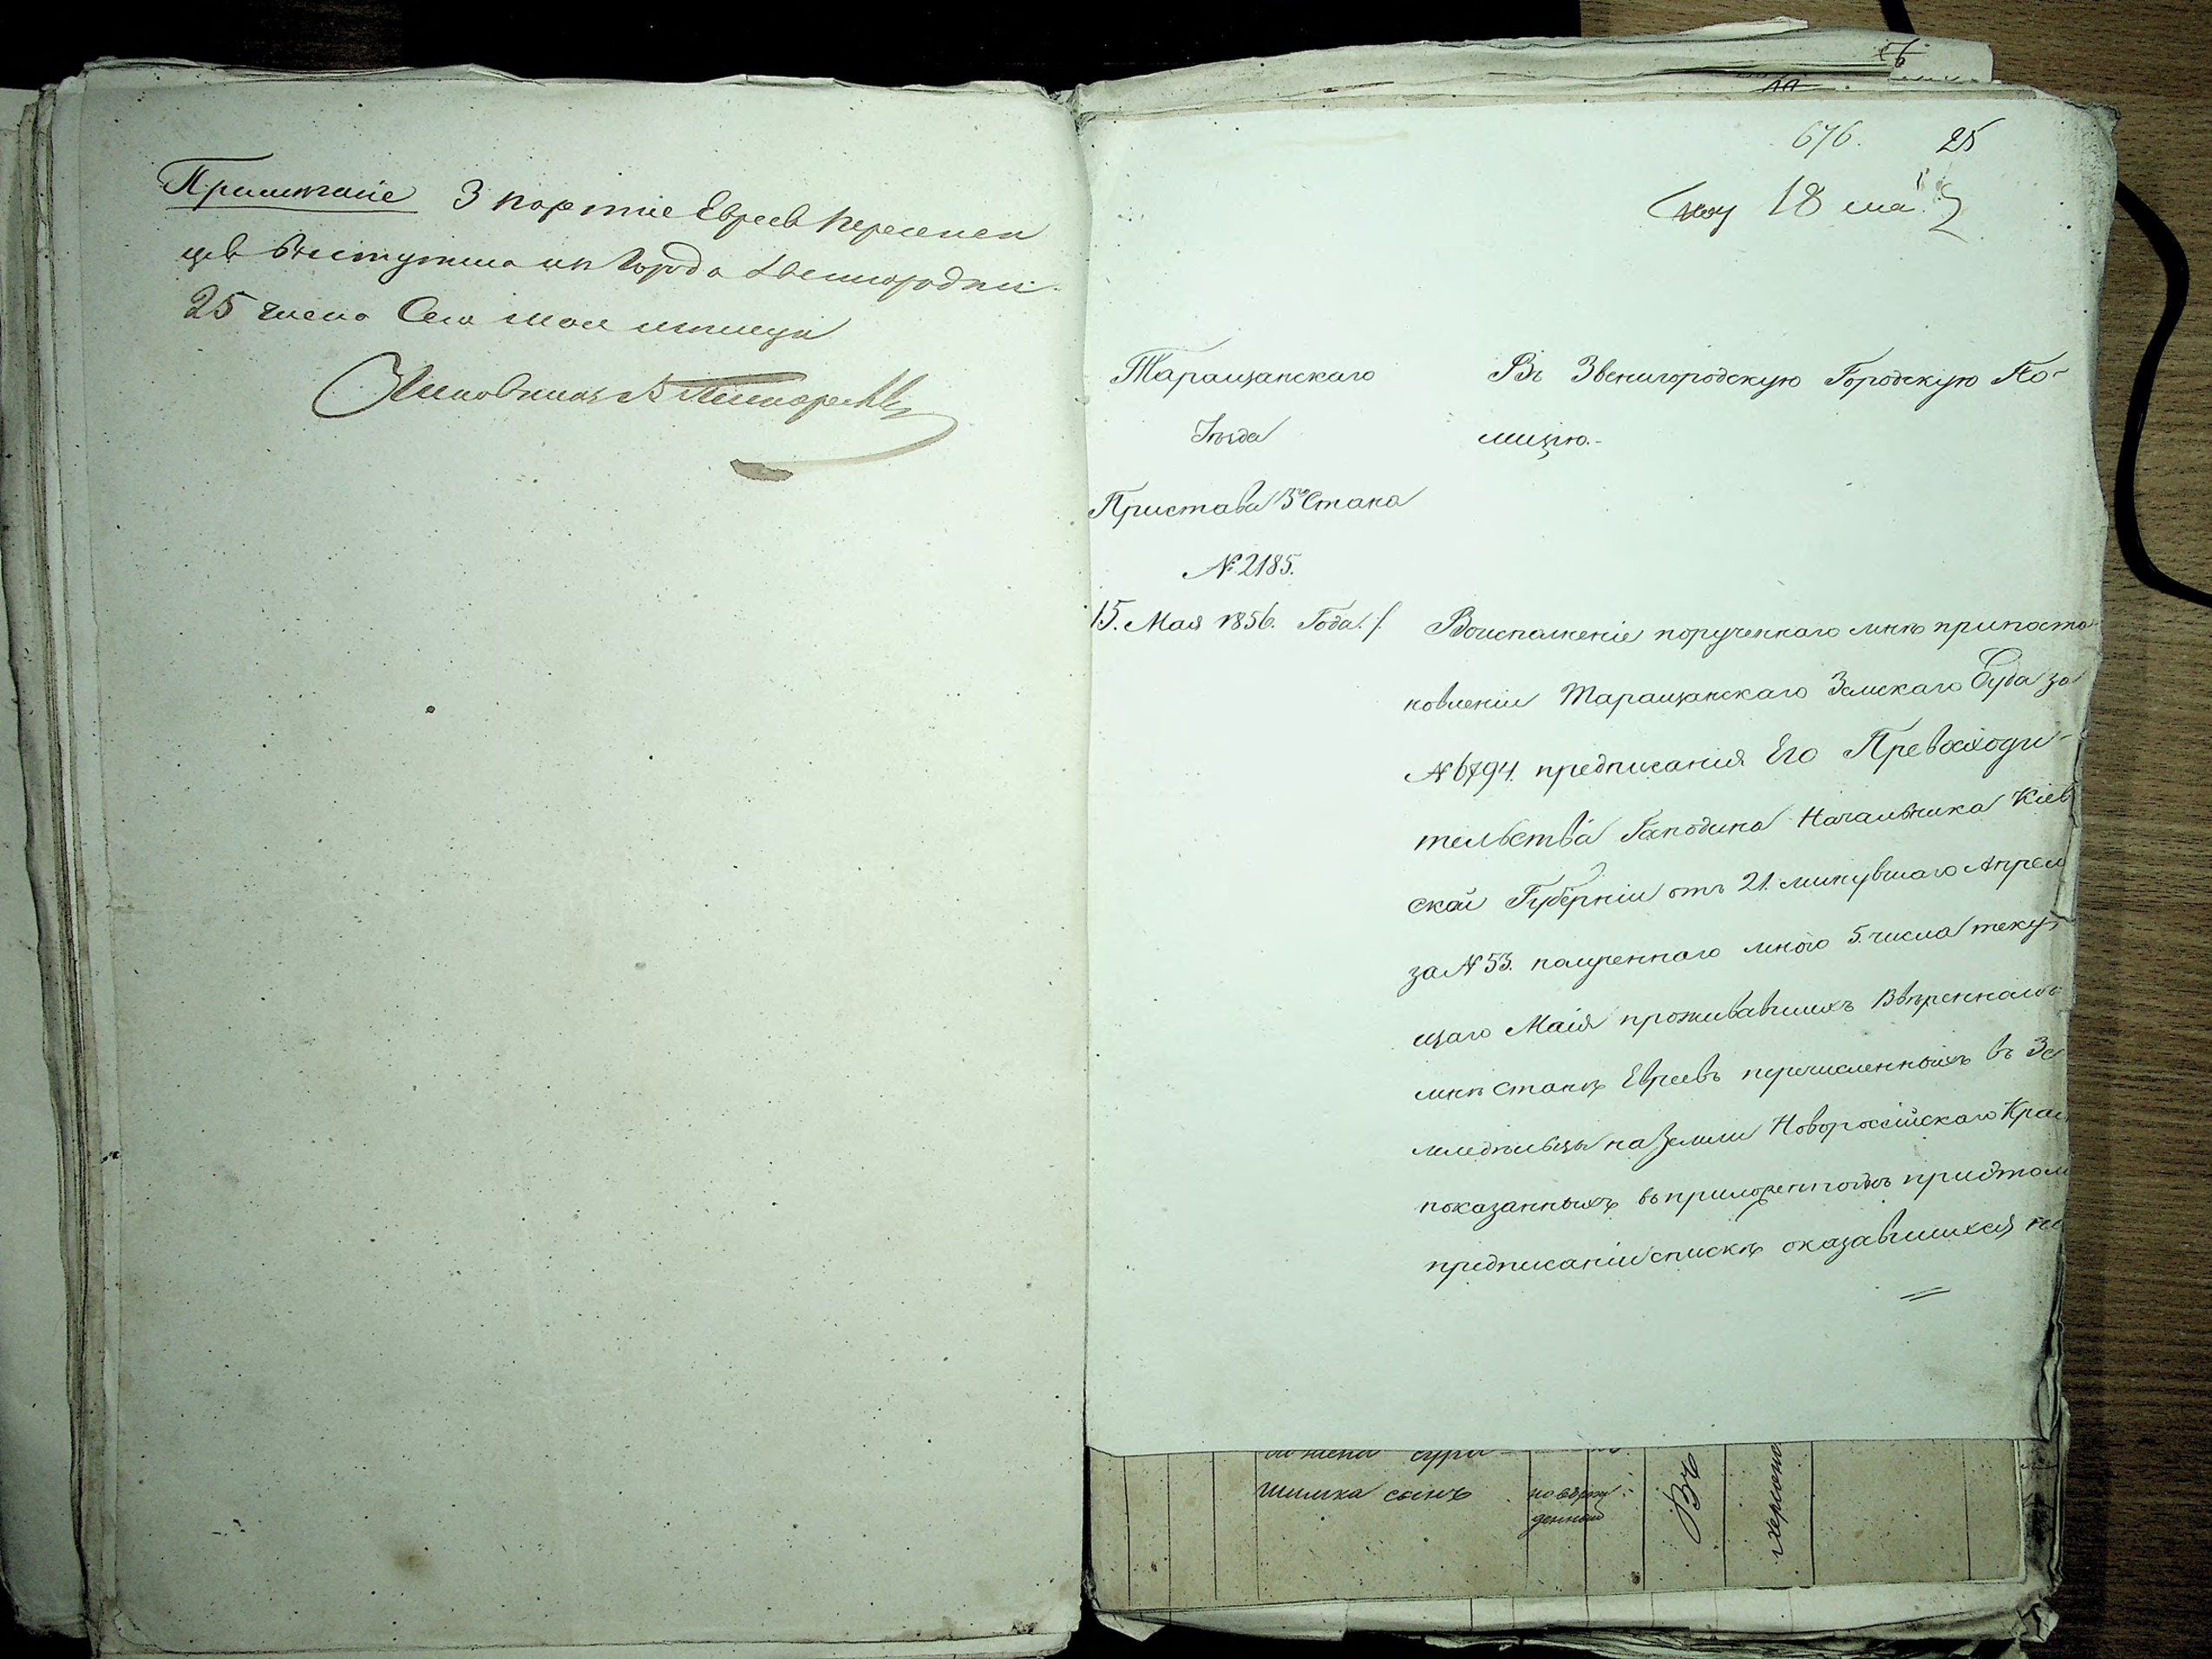 Примѣчаніе 3 партіе Евреевъ переселен
цевъ выступила изъ Города Звенигородки
25 числа Сего мая мѣсяца
Чиновникъ
676. 25
18 маія
Таращанскаго
Уѣзда
Пристава 3го Стана
№ 2185.
15. Мая 1856. Года.
Въ Звенигородскую Городскую По-
лицію.-
Воисполненіе порученнаго мнѣ припоста
новленіи Таращанскаго Земскаго Суда за
№ 6794. предписанія Его Превосходи-
тельства Господина Начальника Кіев
ской Губерніи отъ 21. минувшаго Апреля
за № 53. полученнаго мною 5. числа теку-
щаго Маія проживавшихъ Ввѣренномъ
мнѣ станѣ Евреевъ перечисленныхъ въ Зе
мледѣльцы на Земли Новороссійскаго Края
показанныхъ въ приложенномъ приэтомъ
предписаніи спискѣ оказавшихся на
жена сура
шимка сынъ
новорож
денный
Въ
херсонс